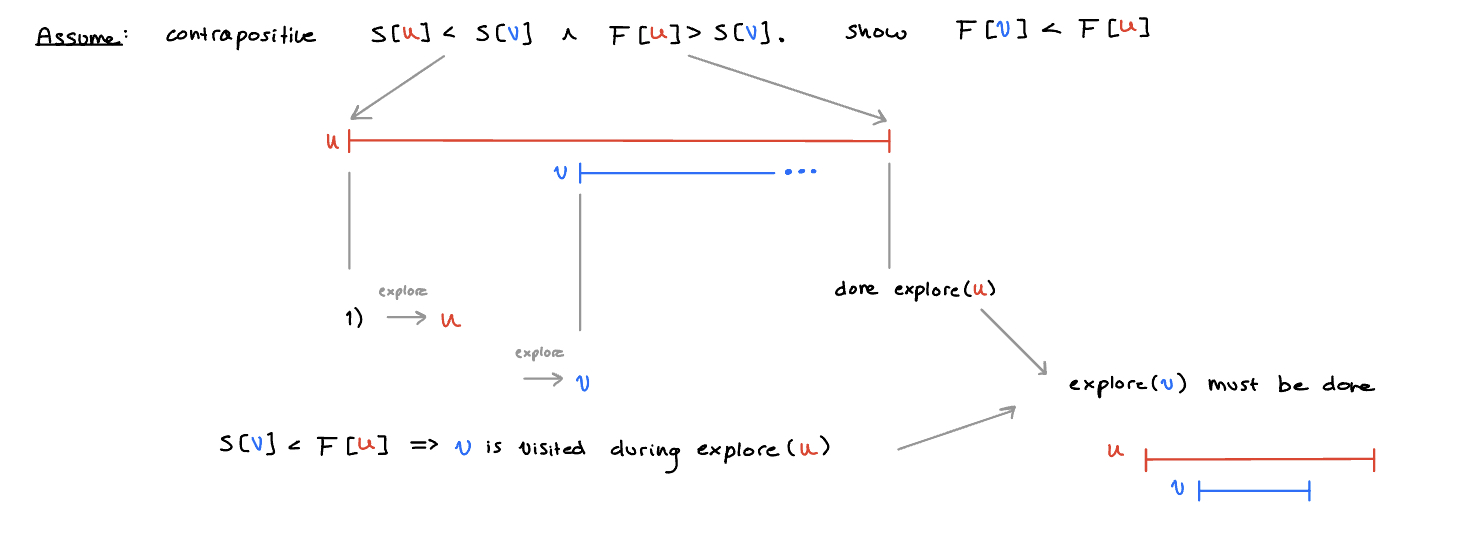 Assume: contrapositive S[u] < S[v] ∧ F[u] > S[v]. show F[v] < F[u]
u
v ...
done explore(u)
explore
1) → u
explore
→ v
explore(v) must be done
S[v] < F[u] => v is visited during explore(u)
u
v